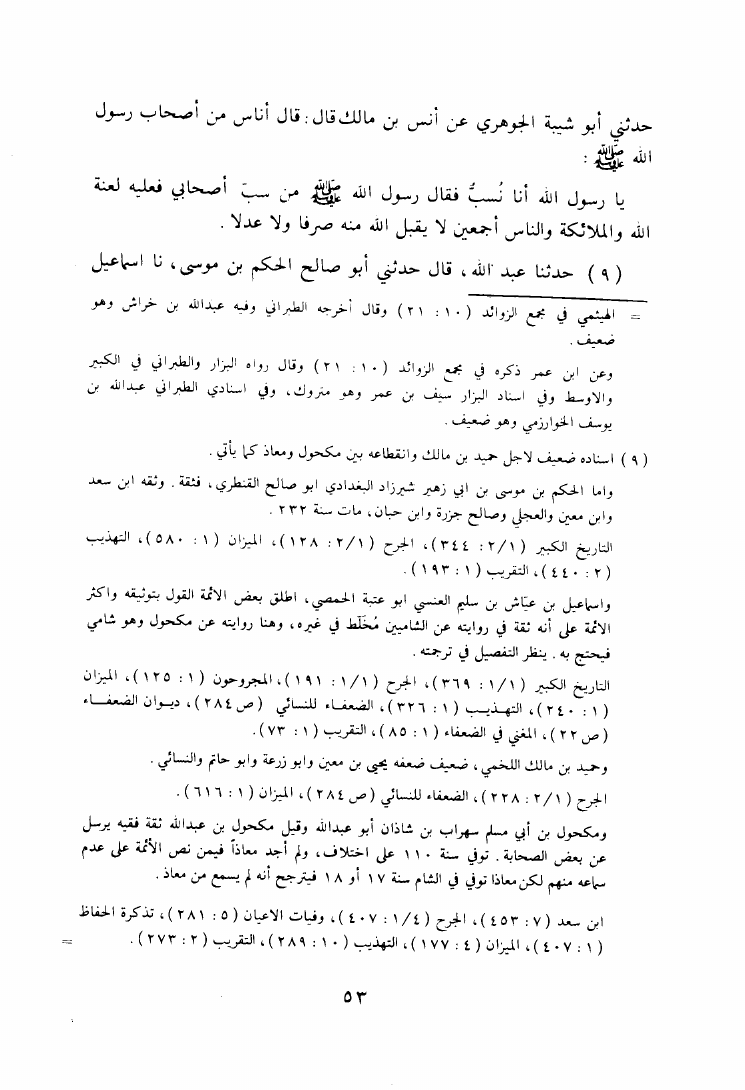 حدثني أبو شيبة الجوهري عن أنس بن مالك قال : قال أناس من أصحاب رسول
الله ﷺ :
يا رسول الله أنا نُسبُّ فقال رسول الله ﷺ من سبّ أصحابي فعليه لعنة
الله والملائكة والناس أجمعين لا يقبل الله منه صرفا ولا عدلا .
( ٩ ) حدثنا عبد الله ، قال حدثني أبو صالح الحكم بن موسى ، نا اسماعيل
= الهيثمي في مجمع الزوائد ( ١٠ : ٢١ ) وقال أخرجه الطبراني وفيه عبدالله بن خراش وهو
ضعيف .
وعن ابن عمر ذكره في مجمع الزوائد ( ١٠ : ٢١ ) وقال رواه البزار والطبراني في الكبير
والاوسط وفي اسناد البزار سيف بن عمر وهو متروك، وفي اسنادي الطبراني عبدالله بن
يوسف الخوارزمي وهو ضعيف .
( ٩ ) اسناده ضعيف لاجل حميد بن مالك وانقطاعه بين مكحول ومعاذ كما يأتي .
واما الحكم بن موسى بن ابي زهير شيرزاد البغدادي ابو صالح القنطري، فثقة . وثقه ابن سعد
وابن معين والعجلي وصالح جزرة وابن حبان، مات سنة ٢٣٢ .
التاريخ الكبير ( ٢/١ : ٣٤٤ )، الجرح ( ٢/١ : ١٢٨ )، الميزان ( ١ : ٥٨٠ )، التهذيب
( ٢ : ٤٤٠ )، التقريب ( ١ : ١٩٣ ) .
واسماعيل بن عيّاش بن سليم العنسي ابو عتبة الحمصي، اطلق بعض الائمة القول بتوثيقه واكثر
الائمة على أنه ثقة في روايته عن الشاميين مُخَلّط في غيره، وهنا روايته عن مكحول وهو شامي
فيحتج به . ينظر التفصيل في ترجمته .
التاريخ الكبير ( ١/١ : ٣٦٩ )، الجرح ( ١/١ : ١٩١ )، المجروحون ( ١ : ١٢٥ )، الميزان
( ١ : ٢٤٠ )، التهذيب ( ١ : ٣٢٦ )، الضعفاء للنسائي ( ص ٢٨٤ )، ديوان الضعفاء
( ص ٢٢ )، المغني في الضعفاء ( ١ : ٨٥ )، التقريب ( ١ : ٧٣ ) .
وحميد بن مالك اللخمي، ضعيف ضعفه يحيى بن معين وابو زرعة وابو حاتم والنسائي .
الجرح ( ٢/١ : ٢٢٨ )، الضعفاء للنسائي ( ص ٢٨٤ )، الميزان ( ١ : ٦١٦ ) .
ومكحول بن أبي مسلم سهراب بن شاذان أبو عبدالله وقيل مكحول بن عبدالله ثقة فقيه يرسل
عن بعض الصحابة . توفي سنة ١١٠ على اختلاف، ولم أجد معاذاً فيمن نص الأئمة على عدم
سماعه منهم لكن معاذا توفي في الشام سنة ١٧ أو ١٨ فيترجح أنه لم يسمع من معاذ .
ابن سعد ( ٧ : ٤٥٣ )، الجرح ( ١/٤ : ٤٠٧ )، وفيات الاعيان ( ٥ : ٢٨١ )، تذكرة الحفاظ
( ١ : ٤٠٧ )، الميزان ( ٤ : ١٧٧ )، التهذيب ( ١٠ : ٢٨٩ )، التقريب ( ٢ : ٢٧٣ ) . =
٥٣